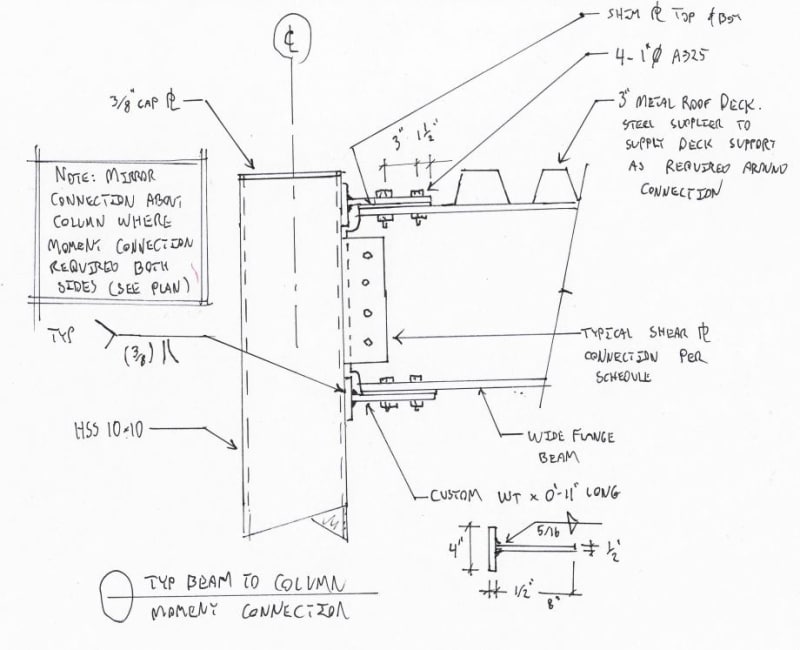 SHIM PL TOP & BSM
4-1"ϕ A325
3/8" CAP PL
3" 1½"
3" METAL ROOF DECK.
STEEL SUPPLIER TO
SUPPLY DECK SUPPORT
AS REQUIRED AROUND
CONNECTION
NOTE: MIRROR
CONNECTION ABOUT
COLUMN WHERE
MOMENT CONNECTION
REQUIRED BOTH
SIDES (SEE PLAN)
TYP
(3/8)
TYPICAL SHEAR PL
CONNECTION PER
SCHEDULE
HSS 10x10
WIDE FLANGE
BEAM
CUSTOM WT x 0'-11" LONG
5/16
4"
½"
½"
8"
TYP BEAM TO COLUMN
MOMENT CONNECTION